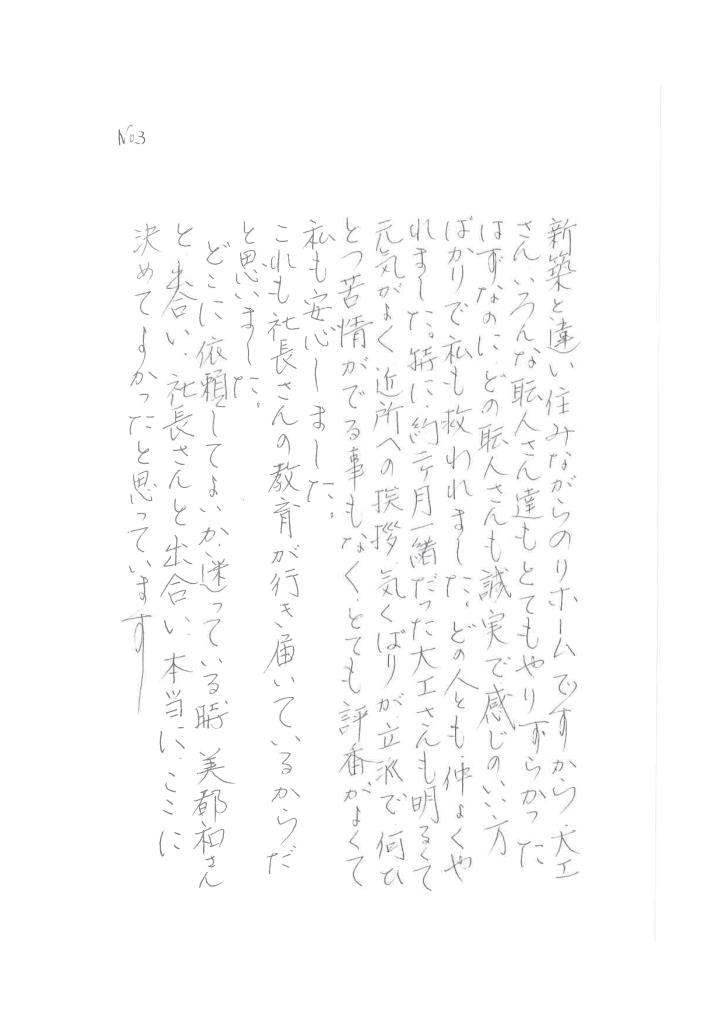 No3
新築と違い住みながらのリホームですから、大工
さん、いろんな職人さん達もとてもやりずらかった
はずなのに、どの職人さんも誠実で感じのいい方
ばかりで私も救われました。どの人とも、仲よくや
れました。特に、約二ヶ月一緒だった大工さんも明るくて
元気がよく、近所への挨拶、気くばりが立派で何ひ
とつ苦情がでる事もなく、とても評番がよくて
私も安心しました。
これも社長さんの教育が行き届いているからだ
と思いました。
どこに依頼してよいか迷っている時、美都和さん
と出合い、社長さんと出合い、本当に、ここに
決めてよかったと思っています